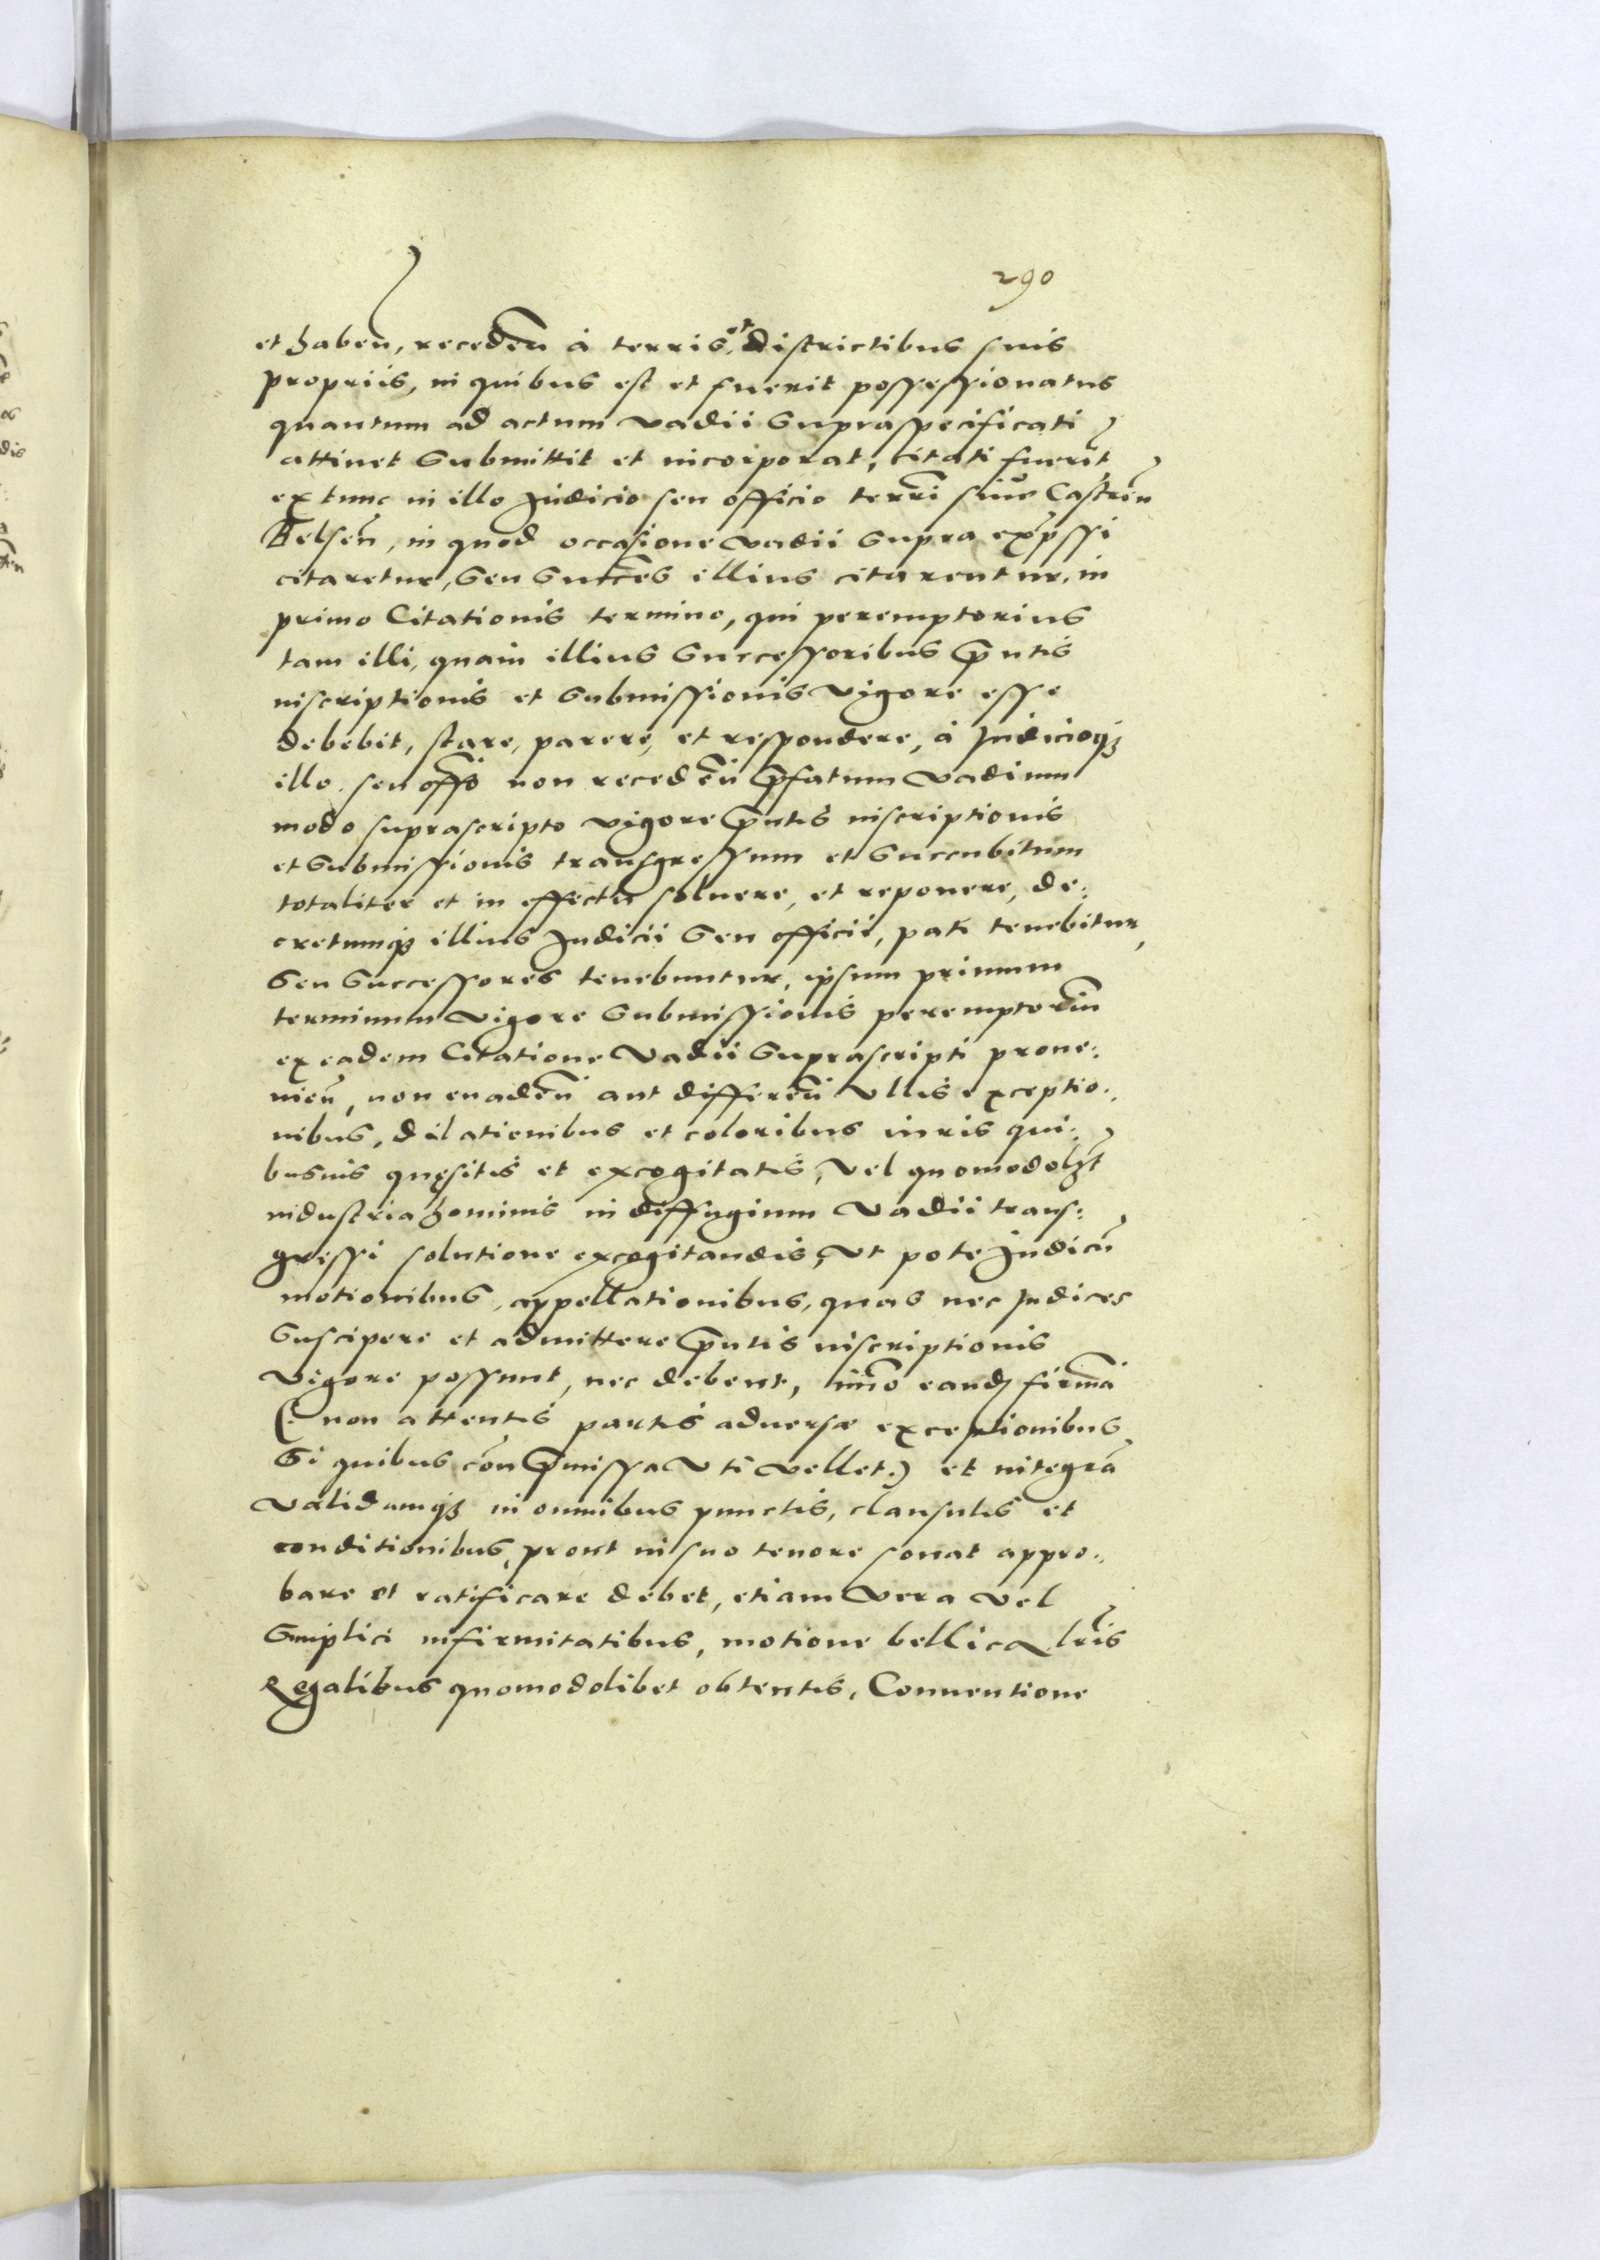 290
et haben, receden à terris et districtibus suis
propriis, in quibus est et fuerit possessionatus
quantum ad actum vadii supraspecificati
attinet submittit et incorporat, citati fuerit
ex tunc in illo Judicio seu officio terri siue Castren
Belsen, in quod occasione vadii supra expssi
citaretur, seu succes illius citarentur, in
primo Citationis termino, qui peremptorius
tam illi, quam illius successoribus pntis
inscriptionis et submissionis vigore esse
debebit, stare, parere, et respondere, à Judicioq3
illo seu offo non receden pfatum vadium
modo suprascripto vigore pntis inscriptionis
et submissionis transgressum et succubitum
totaliter et in effectu soluere, et reponere, de:
cretumq3 illius Judicii seu officii, pati tenebitur,
seu successores tenebuntur, ipsum primum
terminum vigore submissionis peremptorium
ex eadem Citatione vadii suprascripti proue:
nien, non euaden aut differen vllis exceptio:
nibus, dilationibus et coloribus iuris qui:
busuis quęsitis et excogitatis, vel quomodolzt
industria hominis in diffugium vadii trans:
gressi solutione excogitandis, vt pote Judicu
motionibus, appellationibus, quas nec Judices
suscipere et admittere pntis inscriptionis
vigore possunt, nec debent, imo eand firma
(: non attentis partis aduersæ exceptionibus
si quibus con pmissa vti vellet:) et integra
validamq3 in omnibus punctis, clausulis et
conditionibus, prout in suo tenore sonat appro:
bare et ratificare debet, etiam vera vel
simplici infirmitatibus, motione bellica lris
Regalibus quomodolibet obtentis, Conuentione